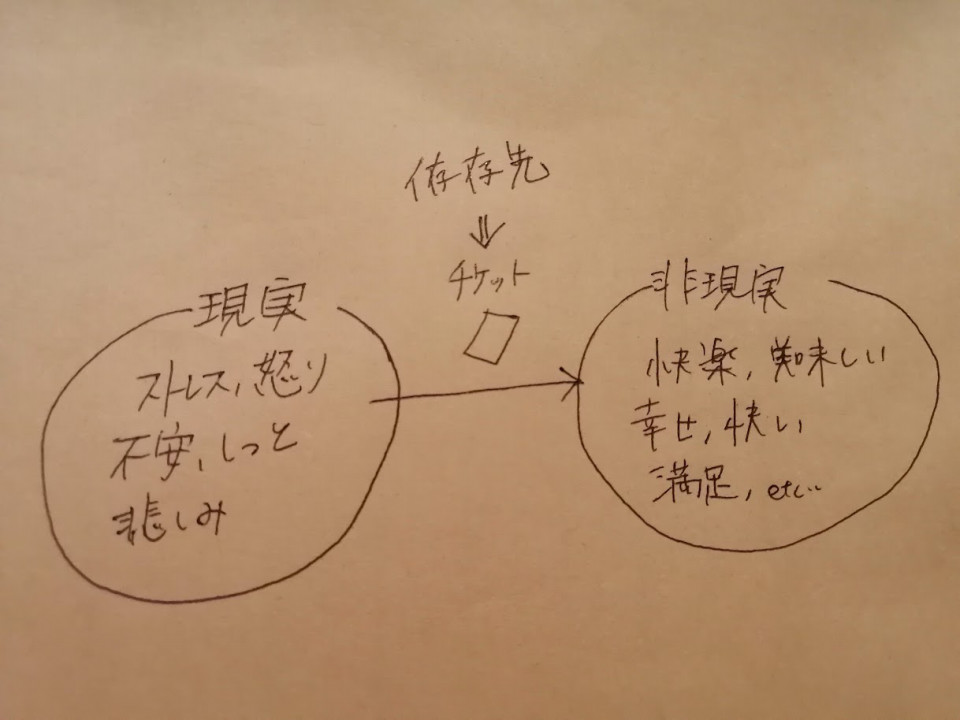 依存先
⇓
チケット
現実
ストレス, 怒り
不安, しっと
悲しみ
非現実
快楽, 美味しい
幸せ, 快い
満足, etc...